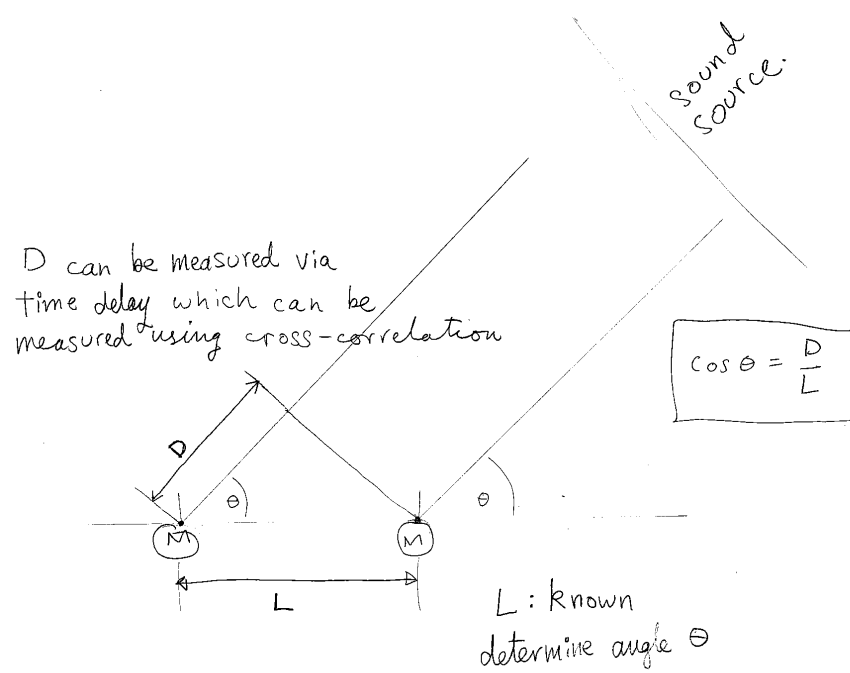 sound
source.
D can be measured via
time delay which can be
measured using cross-correlation
cos θ = D/L
D
θ
θ
M
M
L
L : known
determine angle θ